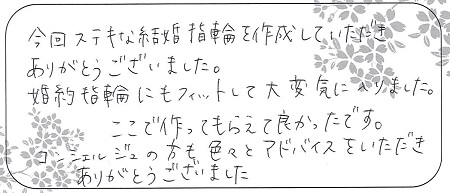 今回ステキな結婚指輪を作成していただき
ありがとうございました。
婚約指輪にもフィットして大変気に入りました。
ここで作ってもらえて良かったです。
コンシェルジュの方も色々とアドバイスをいただき
ありがとうございました